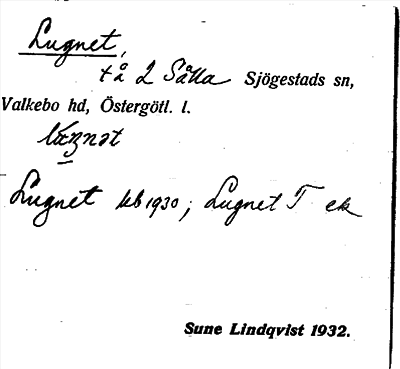 Lugnet,
t å 2 Sålla Sjögestads sn,
Valkebo hd, Östergötl. l.
Lugnet kb 1930; Lugnet T ek
Sune Lindqvist 1932.